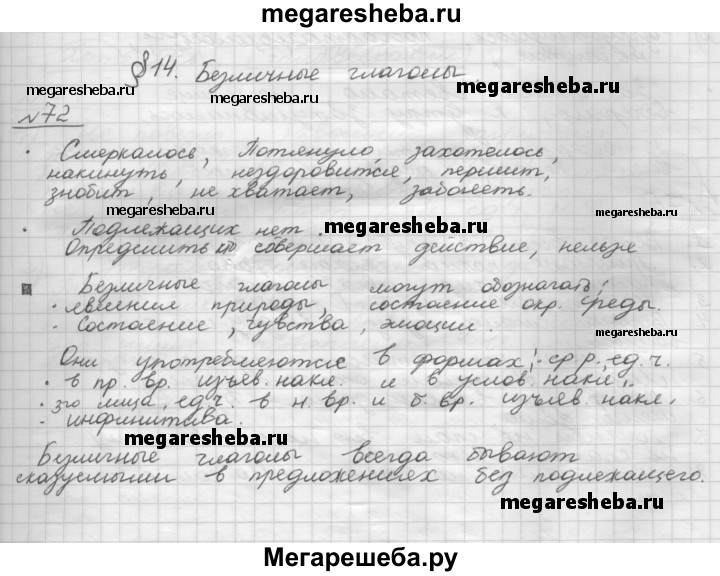 megaresheba.ru
§14. Безличные глаголы
megaresheba.ru
megaresheba.ru
megaresheba.ru
№72
· Смеркалось, Потянуло, захотелось,
накинуть, нездоровится, першит,
знобит, не хватает, заболеть.
megaresheba.ru
megaresheba.ru
· Подлежащих нет.
megaresheba.ru
Определить кто совершает действие, нельзя
Безличные глаголы могут обозначать:
· явления природы, состояние окр. среды.
· Состояние, чувства, эмоции.
megaresheba.ru
Они употребляются в формах: · ср.р., ед.ч.
· в пр. вр. изъяв. накл. и в услов. накл.
· 3го лица, ед.ч. в н. вр. и б. вр. изъяв. накл.
· инфинитива.
megaresheba.ru
Безличные глаголы всегда бывают
сказуемыми в предложениях без подлежащего.
megaresheba.ru
Мегарешеба.ру